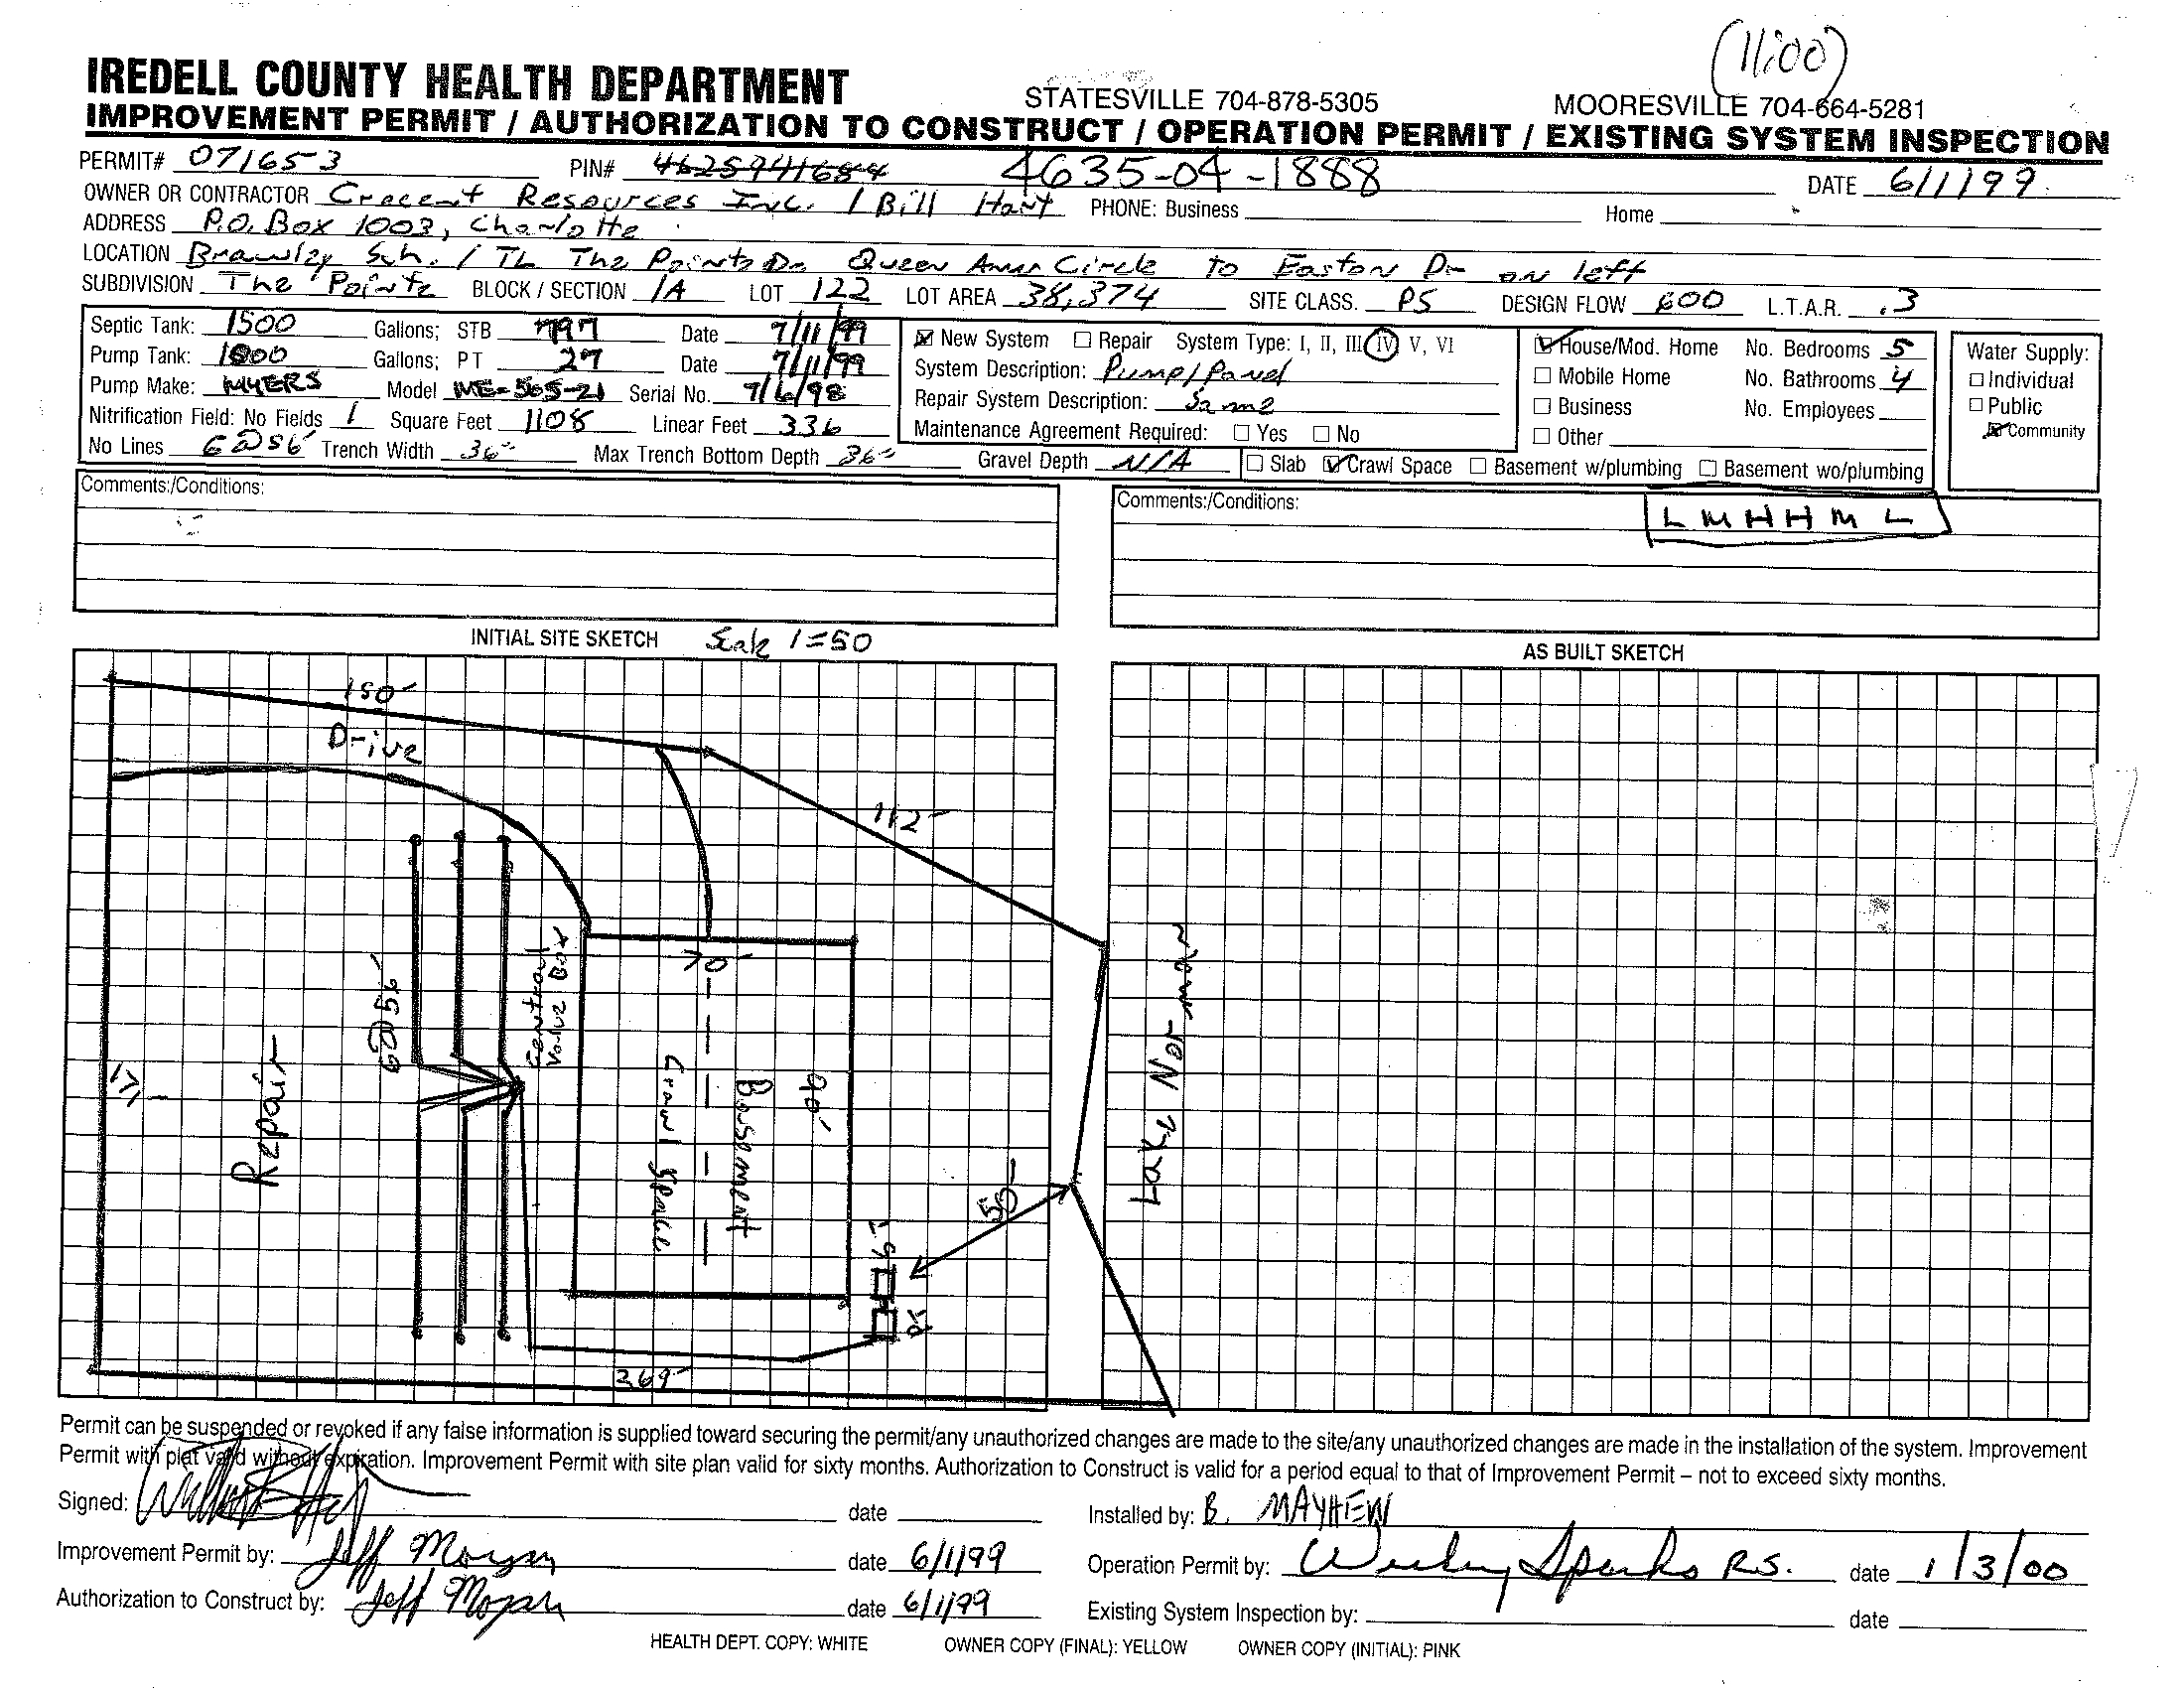 (11:00)
IREDELL COUNTY HEALTH DEPARTMENT STATESVILLE 704-878-5305 MOORESVILLE 704-664-5281
IMPROVEMENT PERMIT / AUTHORIZATION TO CONSTRUCT / OPERATION PERMIT / EXISTING SYSTEM INSPECTION
PERMIT# 071653 PIN# 4625941684 4635-04-1888 DATE 6/1/99
OWNER OR CONTRACTOR Crecent Resources Inc. / Bill Hart PHONE: Business Home
ADDRESS P.O. Box 1003, Charlotte
LOCATION Brawley Sch. / TL The Pointe Dr. Queen Anne Circle to Easton Dr on left
SUBDIVISION The Pointe BLOCK / SECTION 1A LOT 122 LOT AREA 38,374 SITE CLASS. PS DESIGN FLOW 600 L.T.A.R. .3
Septic Tank: 1500 Gallons; STB 797 Date 7/11/99
Pump Tank: 1000 Gallons; PT 27 Date 7/11/99
Pump Make: MYERS Model ME-50S-21 Serial No. 7/6/98
Nitrification Field: No Fields 1 Square Feet 1108 Linear Feet 336
No Lines 6@56' Trench Width 36" Max Trench Bottom Depth 36" Gravel Depth N/A
New System Repair System Type: I, II, III, IV, V, VI
System Description: Pump/Panel
Repair System Description: Same
Maintenance Agreement Required: Yes No
House/Mod. Home No. Bedrooms 5
Mobile Home No. Bathrooms 4
Business No. Employees
Other
Slab Crawl Space Basement w/plumbing Basement wo/plumbing
Water Supply:
Individual
Public
Community
Comments:/Conditions:
Comments:/Conditions:
L M H H M L
INITIAL SITE SKETCH Scale 1=50
AS BUILT SKETCH
150'
Drive
112'
70'
Central
Valve Box
6@56'
Repair
Crawl Space
Basement
90'
Lake Norman
50'
ST
PT
269'
Permit can be suspended or revoked if any false information is supplied toward securing the permit/any unauthorized changes are made to the site/any unauthorized changes are made in the installation of the system. Improvement
Permit with plat valid without expiration. Improvement Permit with site plan valid for sixty months. Authorization to Construct is valid for a period equal to that of Improvement Permit – not to exceed sixty months.
Signed: date Installed by: B. MAYHEW
Improvement Permit by: Jeff Morgan date 6/1/99 Operation Permit by: Wesley Sparks R.S. date 1/3/00
Authorization to Construct by: Jeff Morgan date 6/1/99 Existing System Inspection by: date
HEALTH DEPT. COPY: WHITE OWNER COPY (FINAL): YELLOW OWNER COPY (INITIAL): PINK